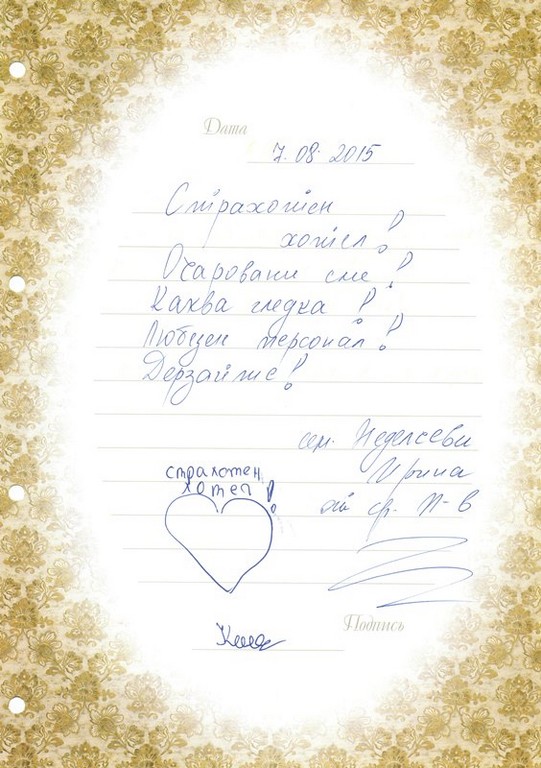 Дата
7.08.2015
Страхотен
хотел!
Очаровани сме!
Каква гледка!
Любезен персонал!
Дерзайте!
сем. Неделчеви
Ирина
от гр. П-в
страхотен
хотел!
Подпись